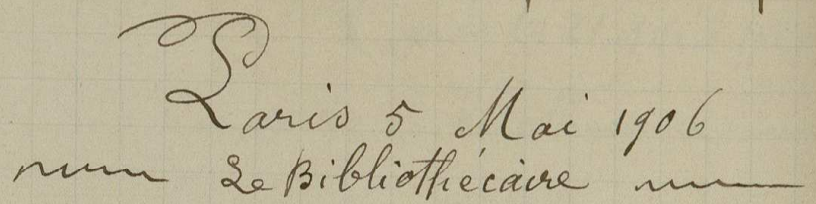 Paris 5 Mai 1906
Le Bibliothécaire